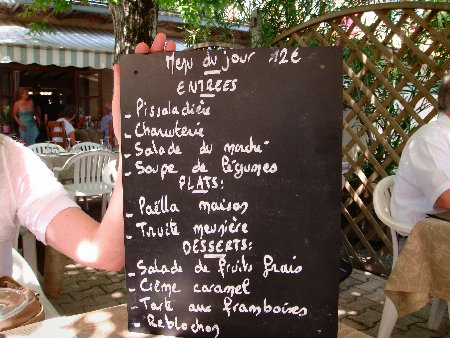 Menu du jour 12€
ENTREES
- Pissaladière
- Charcuterie
- Salade du marché
- Soupe de légumes
PLATS:
- Paëlla maison
- Truite meunière
DESSERTS:
- Salade de fruits frais
- Crème caramel
- Tarte aux framboises
- Reblochon